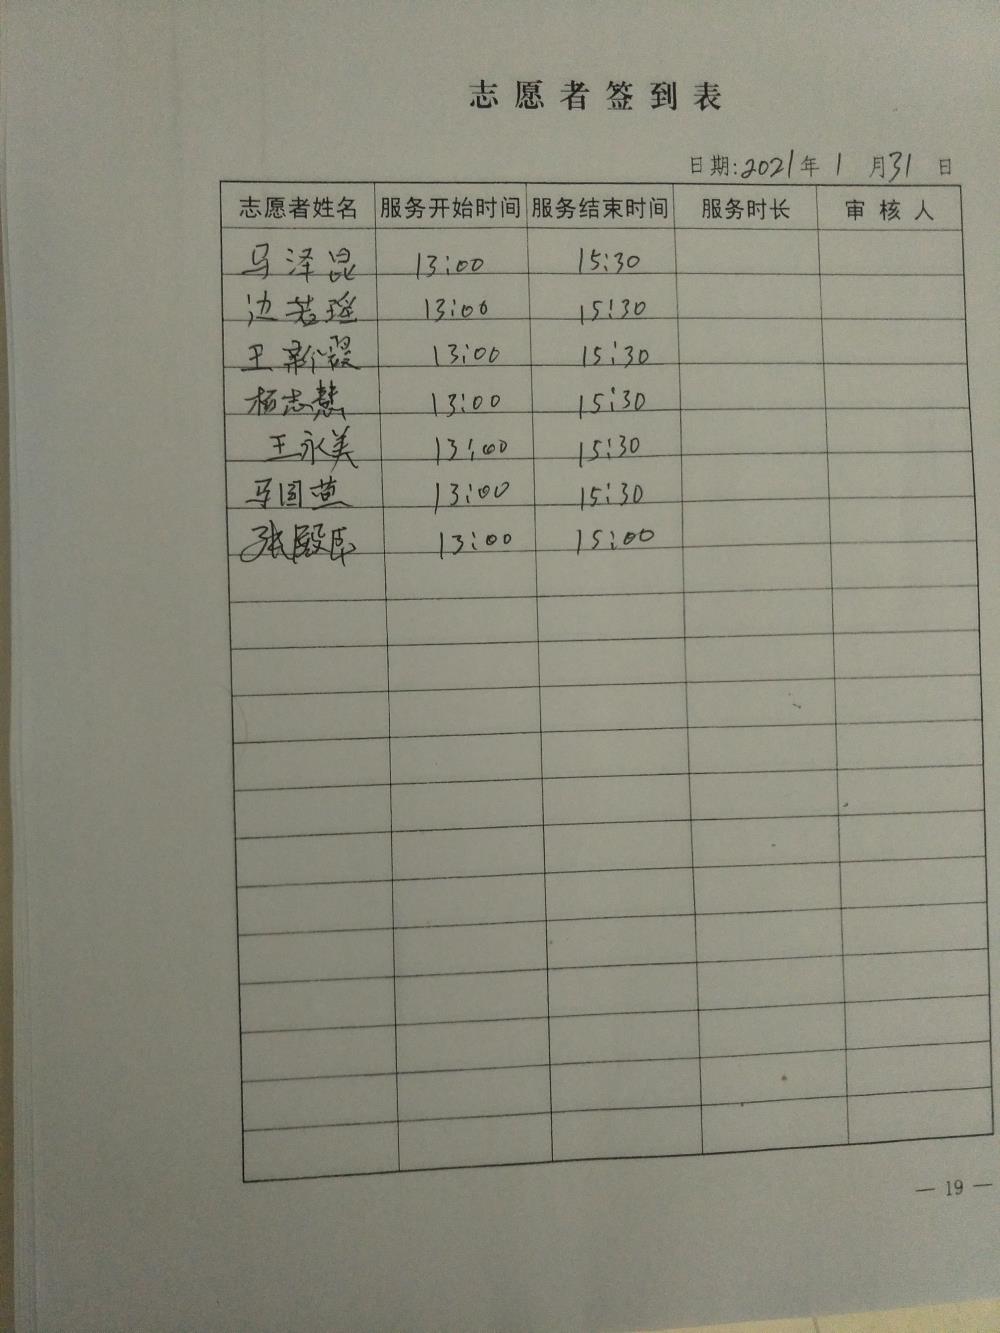 志愿者签到表
日期:2021年1月31日
志愿者姓名 服务开始时间 服务结束时间 服务时长 审核人
马泽昆 13:00 15:30
边若瑶 13:00 15:30
王新霞 13:00 15:30
杨志慧 13:00 15:30
王永美 13:00 15:30
马国燕 13:00 15:30
张殿臣 13:00 15:00
— 19 —